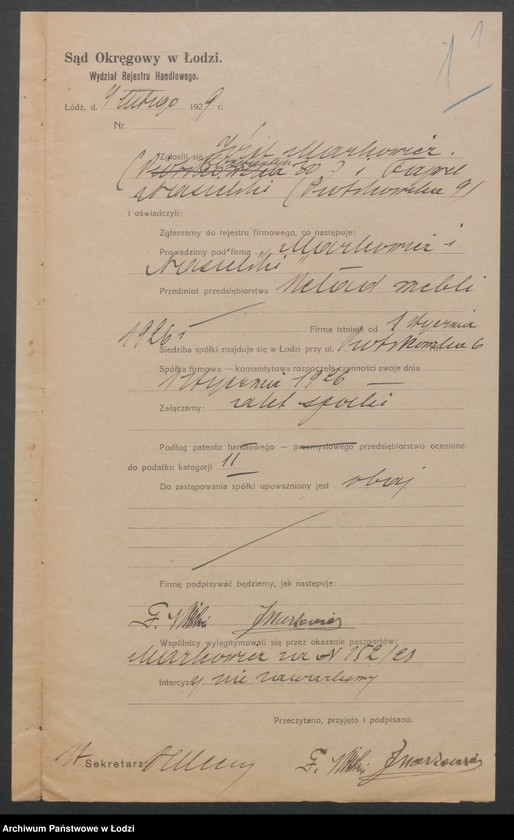 1 1
Sąd Okręgowy w Łodzi.
Wydział Rejestru Handlowego.
Łódź, d. 4 lutego 1929 r.
Nr.
Zgłosili się Markowicz.
( 30 ) i
Nasielski (Piotrkowska 9)
i oświadczyli:
Zgłaszamy do rejestru firmowego, co następuje:
Prowadzimy pod firmą „Markowicz i
Nasielski"
Przedmiot przedsiębiorstwa Skład mebli
Firma istnieje od 1 stycznia
1926 r
Siedziba spółki znajduje się w Łodzi przy ul. Piotrkowska 6
Spółka firmowa — komandytowa rozpoczęła czynności swoje dnia
1 stycznia 1926
Załączamy: akt spółki
Podług patentu handlowego — przemysłowego przedsiębiorstwo ocenione
do podatku kategorji II
Do zastępowania spółki upoważniony jest obaj
Firmę podpisywać będziemy, jak następuje:
F. JMarkowicz
Wspólnicy wylegitymowali się przez okazanie paszportów:
Markowicz za N 152/
Intercyzy nie zawarliśmy
Przeczytano, przyjęto i podpisano.
Sekretarz
F. JMarkowicz
Archiwum Państwowe w Łodzi